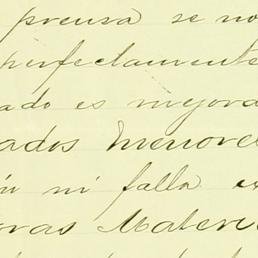 prensa se no
perfectamente
ado es mejora
ados menore
ón ni falla ex
oras Materi